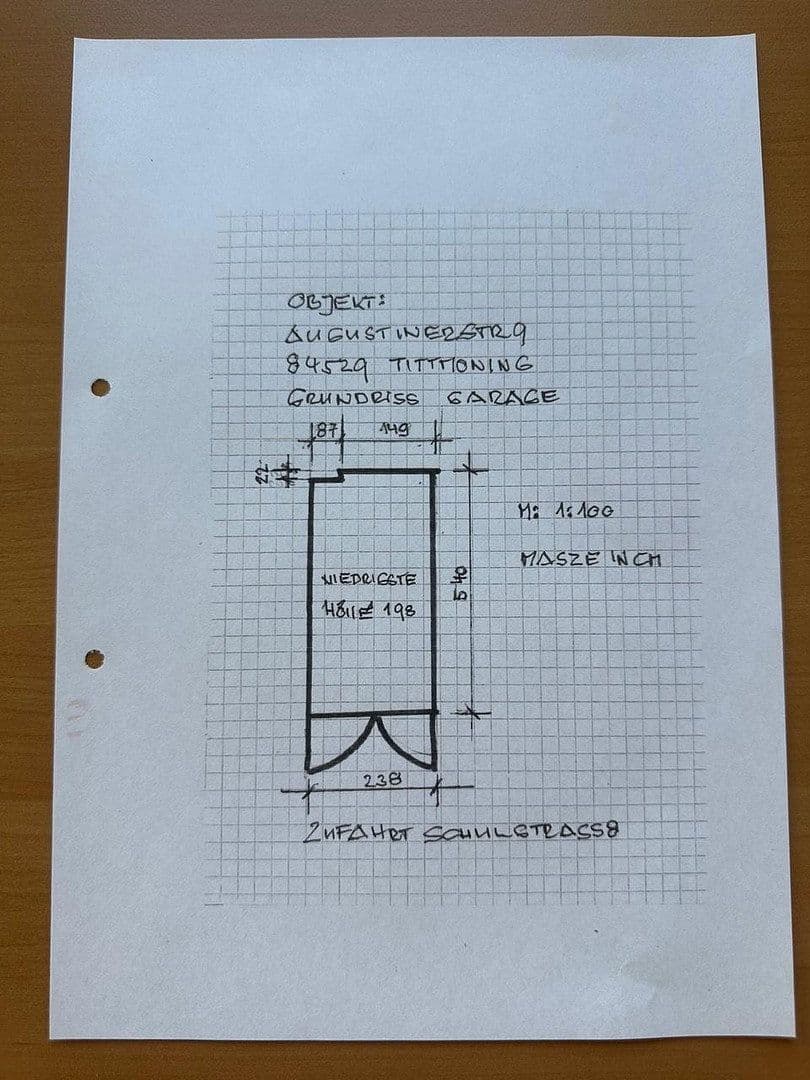 OBJEKT:
AUGUSTINERSTR 9
84529 TITTMONING
GRUNDRISS GARAGE
87 149
22
M: 1:100
MASZE IN CM
540
NIEDRIGSTE
HÖHE 198
238
ZUFAHRT SCHULSTRASSE